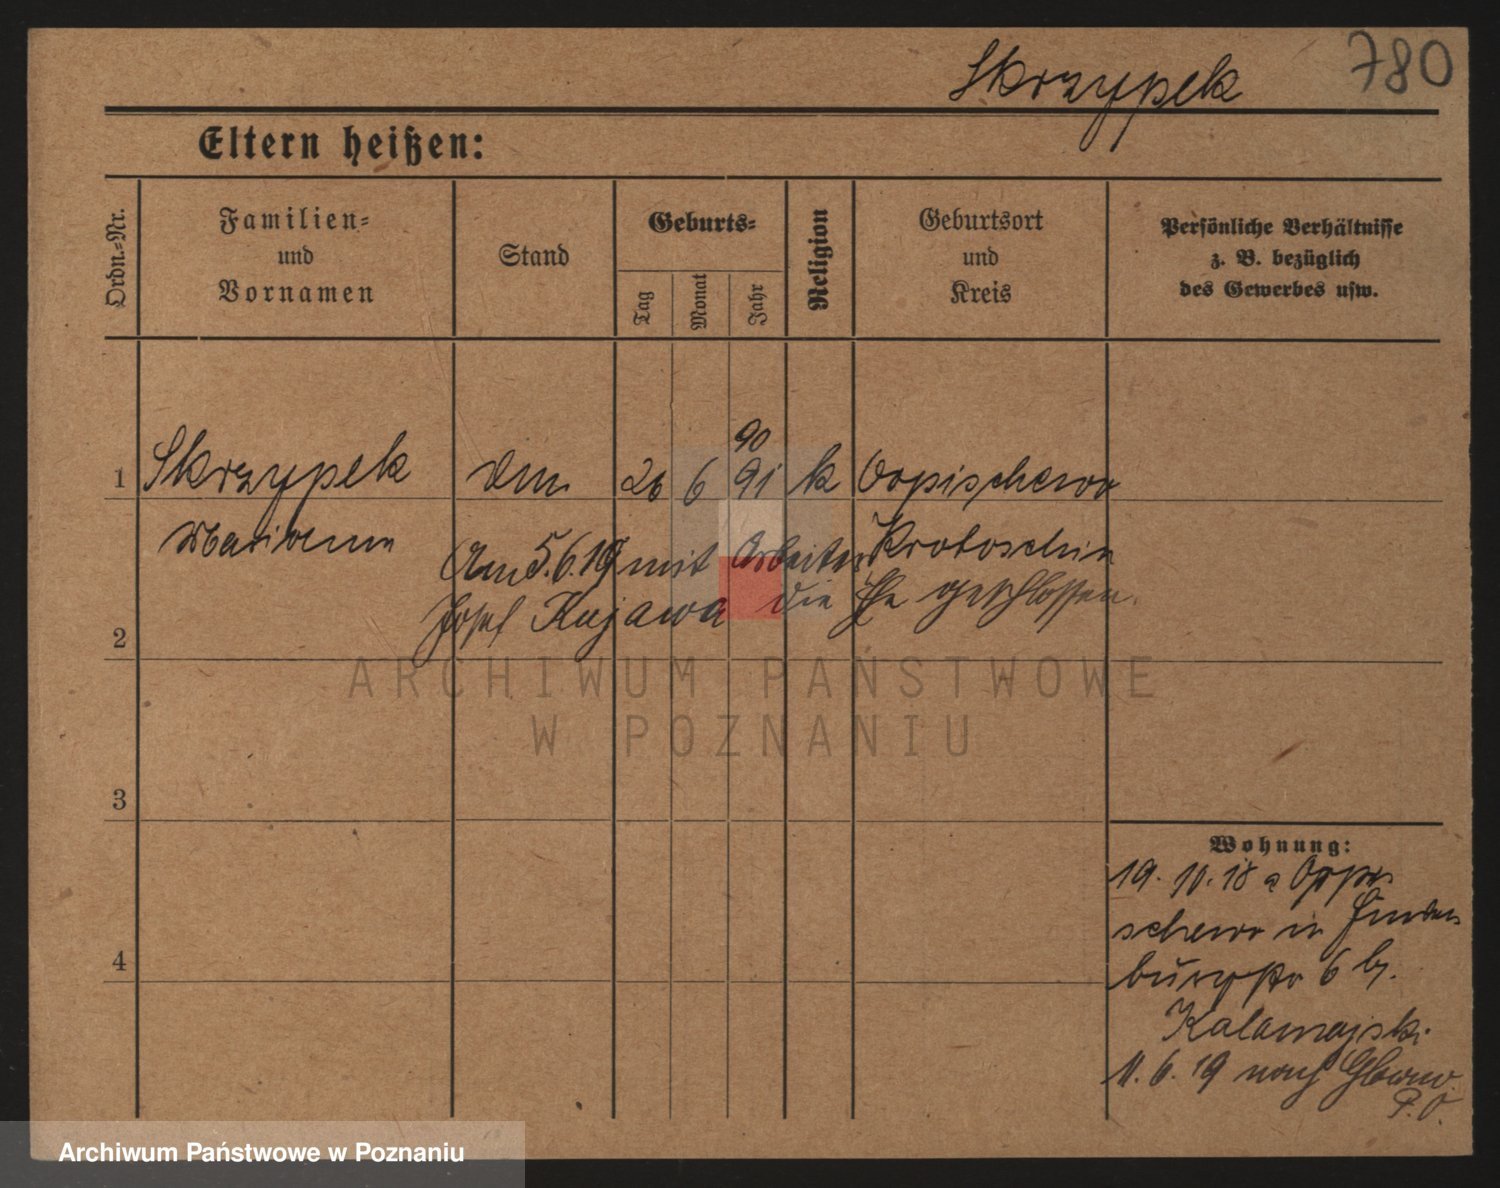 Skrzypek 780
Eltern heißen:
Ordn.-Nr.
Familien-
und
Vornamen
Stand
Geburts-
Tag
Monat
Jahr
Religion
Geburtsort
und
Kreis
Persönliche Verhältnisse
z. B. bezüglich
des Gewerbes usw.
90
1 Skrzypek 26 6 91 k
Marianna Krotoschin
Am 5.6.19 mit Arbeiter
Josef Kujawa die Ehe geschlossen.
2
3
4
Wohnung:
19. 10. 18
schewo in
6 b.
Kalamajski
11. 6. 19 nach
ARCHIWUM PAŃSTWOWE
W POZNANIU
Archiwum Państwowe w Poznaniu